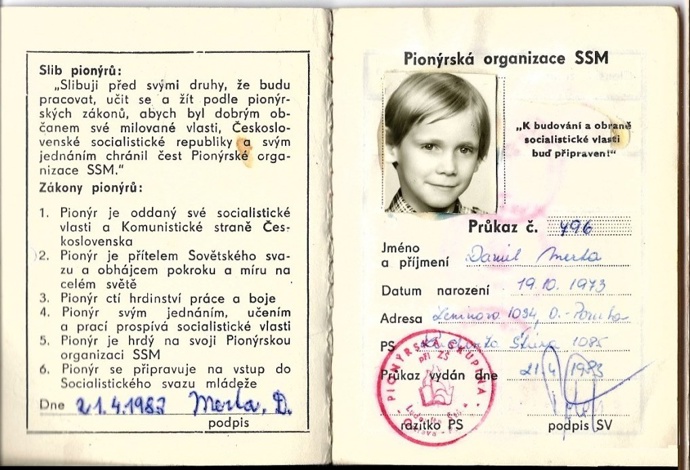 Slib pionýrů:
„Slibuji před svými druhy, že budu
pracovat, učit se a žít podle pionýr-
ských zákonů, abych byl dobrým ob-
čanem své milované vlasti, Českoslo-
venské socialistické republiky a svým
jednáním chránil čest Pionýrské orga-
nizace SSM.“
Zákony pionýrů:
1. Pionýr je oddaný své socialistické
vlasti a Komunistické straně Čes-
koslovenska
2. Pionýr je přítelem Sovětského sva-
zu a obhájcem pokroku a míru na
celém světě
3. Pionýr ctí hrdinství práce a boje
4. Pionýr svým jednáním, učením
a prací prospívá socialistické vlasti
5. Pionýr je hrdý na svoji Pionýrskou
organizaci SSM
6. Pionýr se připravuje na vstup do
Socialistického svazu mládeže
Dne 21.4.1983 Merta, D.
podpis
Pionýrská organizace SSM
„K budování a obraně
socialistické vlasti
buď připraven!“
Průkaz č. 496
Jméno
a příjmení Daniel Merta
Datum narození 19.10.1973
Adresa Leninova 1094, O.-Poruba
PS Štúra 1085
Průkaz vydán dne 21.4.1983
PIONÝRSKÁ SKUPINA
při ZŠ
razítko PS podpis SV